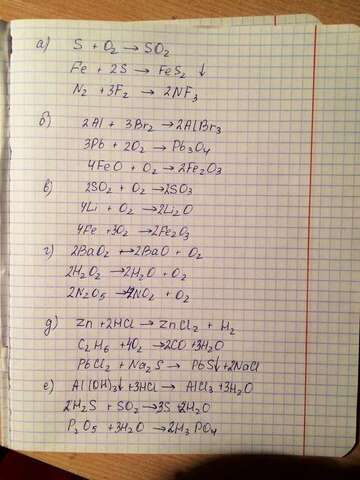 а) S + O₂ → SO₂
Fe + 2S → FeS₂ ↓
N₂ + 3F₂ → 2NF₃
б) 2Al + 3Br₂ → 2AlBr₃
3Pb + 2O₂ → Pb₃O₄
4FeO + O₂ → 2Fe₂O₃
в) 2SO₂ + O₂ → 2SO₃
4Li + O₂ → 2Li₂O
4Fe + 3O₂ → 2Fe₂O₃
г) 2BaO₂ → 2BaO + O₂
2H₂O₂ → 2H₂O + O₂
2N₂O₅ → 4NO₂ + O₂
д) Zn + 2HCl → ZnCl₂ + H₂
C₂H₆ + O₂ → 2CO + 3H₂O
PbCl₂ + Na₂S → PbS↓ + 2NaCl
е) Al(OH)₃↓ + 3HCl → AlCl₃ + 3H₂O
2H₂S + SO₂ → 3S + 2H₂O
P₂O₅ + 3H₂O → 2H₃PO₄